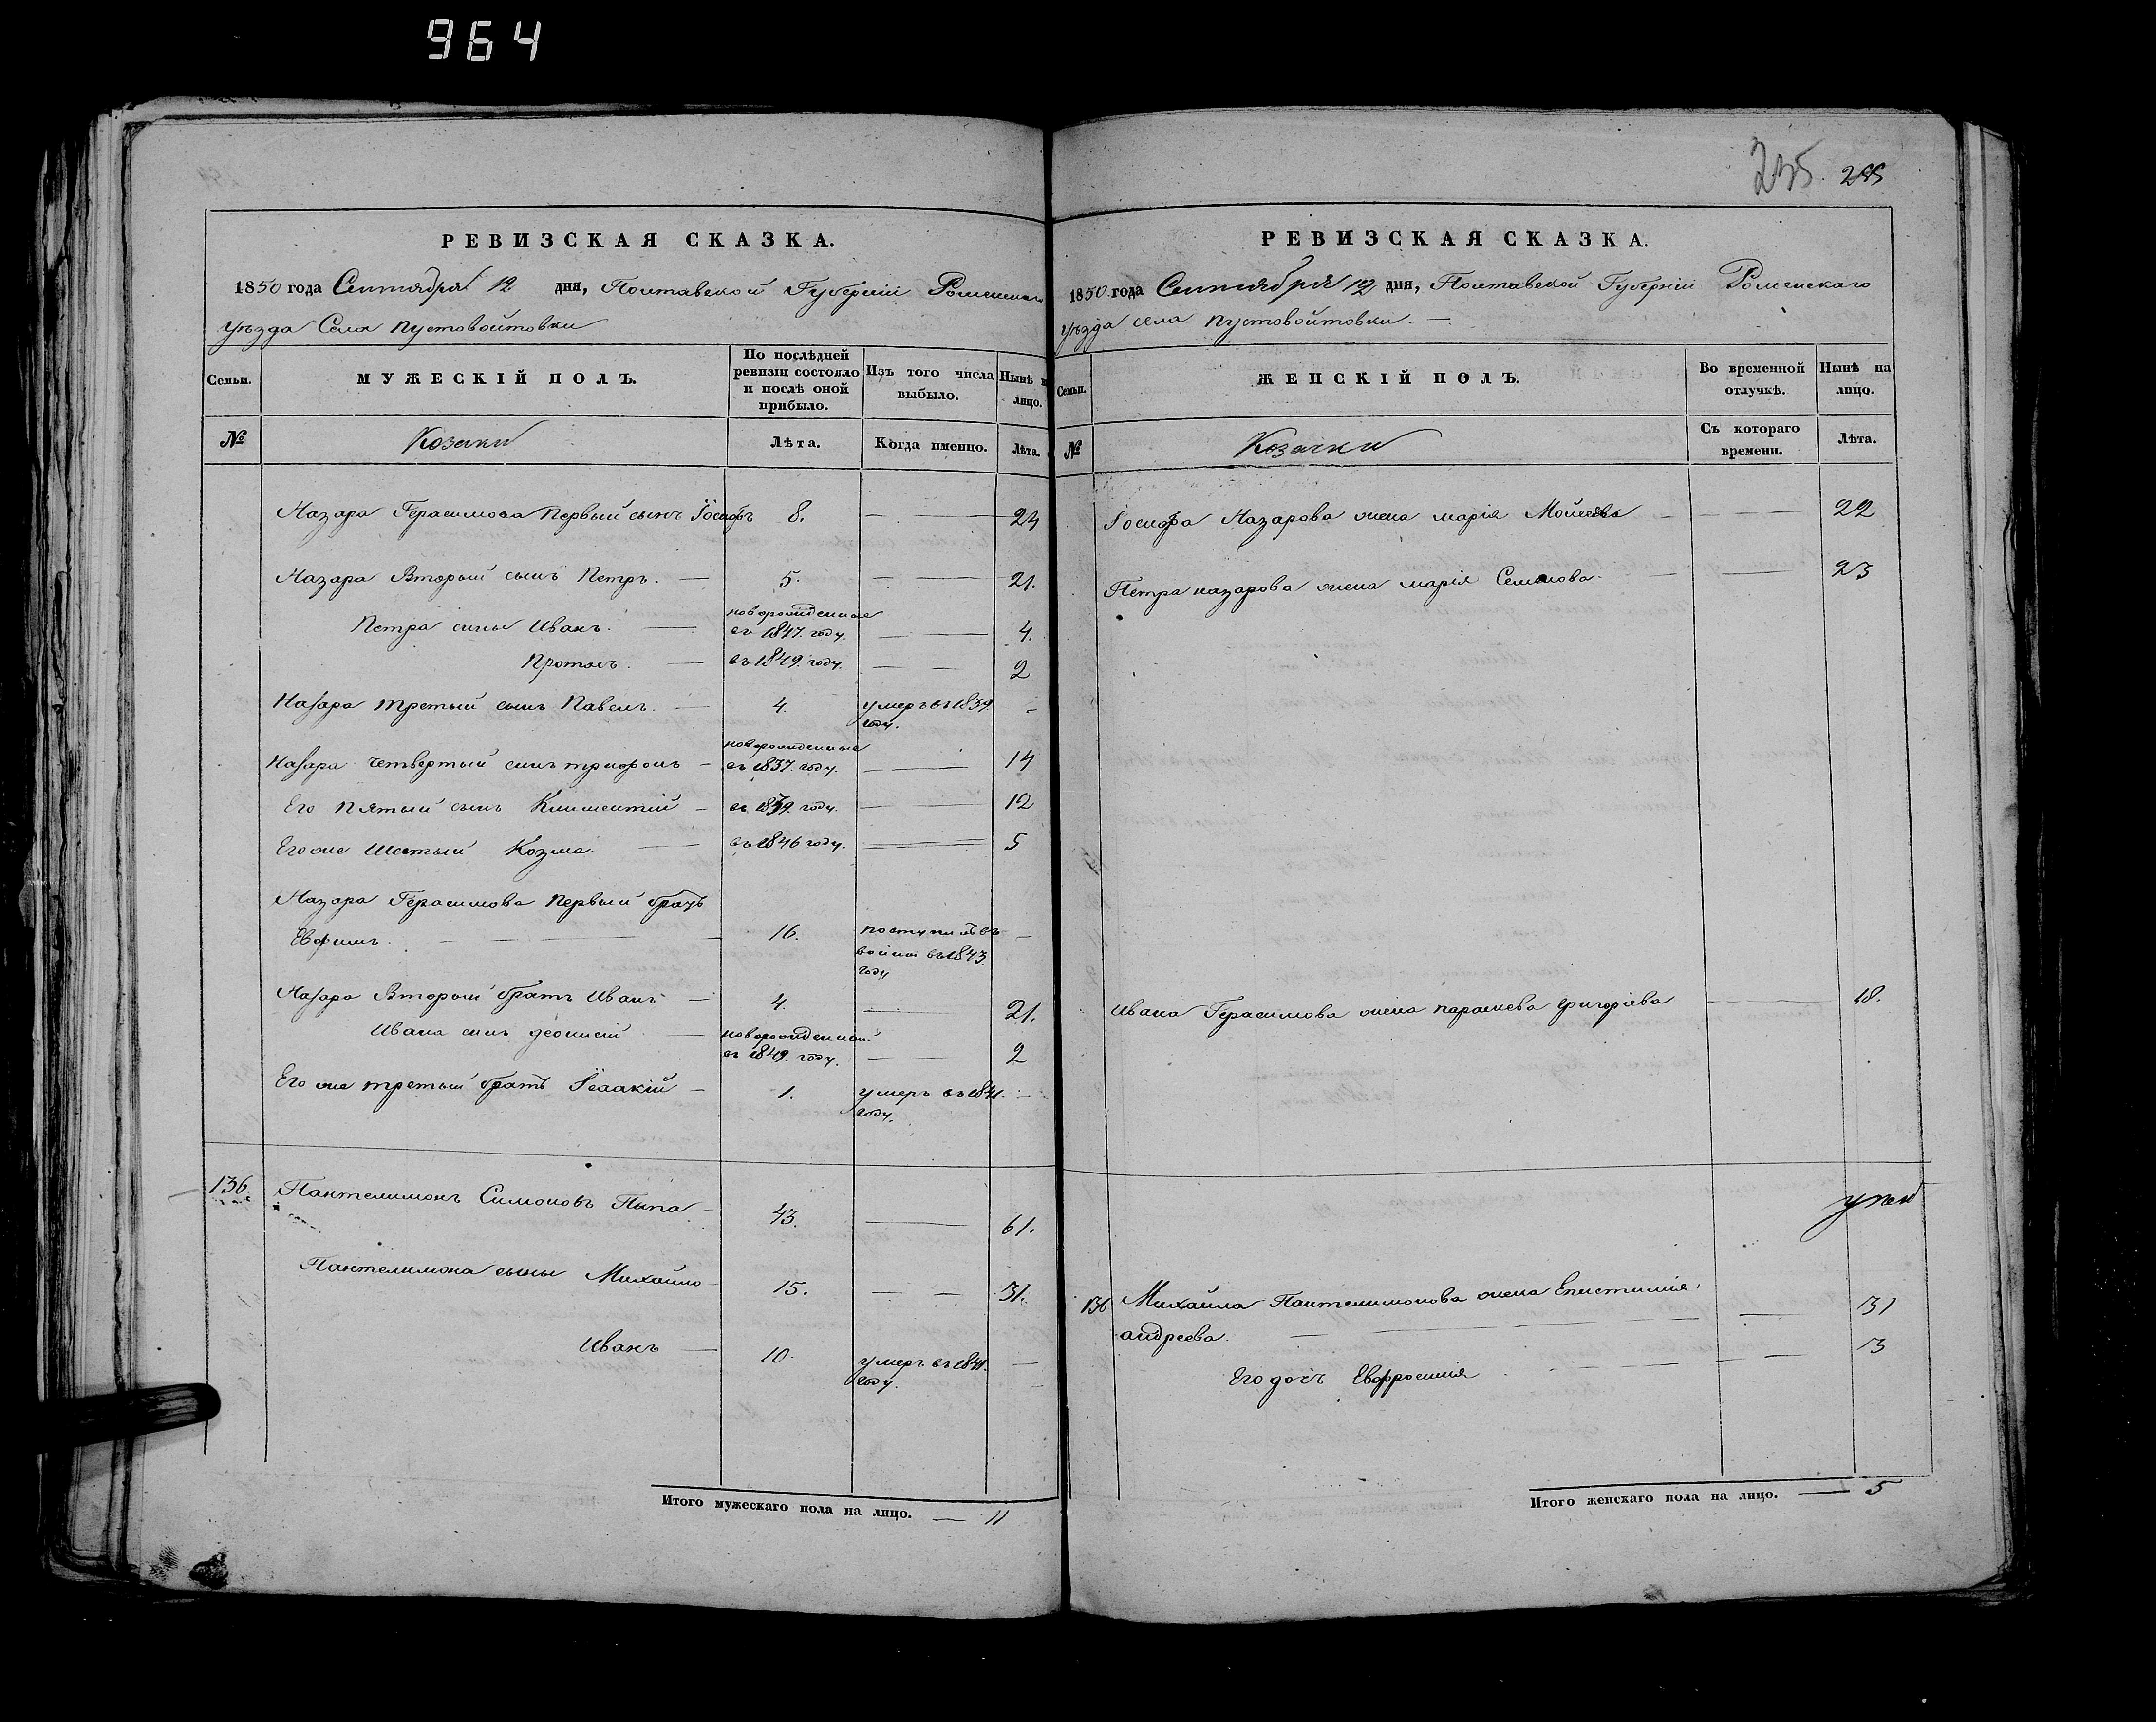 964
РЕВИЗСКАЯ СКАЗКА.
1850 года Сентября 12 дня, Полтавской Губерніи Роменскаго
уѣзда Села Пустовойтовки
Семьи. МУЖЕСКІЙ ПОЛЪ. По послѣдней ревизіи состояло и послѣ оной прибыло. Изъ того числа выбыло. Нынѣ на лицо.
№ Козаки Лѣта. Когда именно. Лѣта.
Назара Герасимова Первый сынъ Іосифъ 8. 24
Назара Второй сынъ Петръ. 5. 21.
новорожденные
Петра сыны Иванъ. въ 1847. году. 4.
Протасъ. въ 1849. году. 2
Назара третый сынъ Павелъ. 4. умеръ въ 1839
году.
новорожденные
Назара четвертый сынъ трифонъ въ 1837. году. 14
Его Пятый сынъ Климентій въ 1839. году. 12
Его же Шестый Козма. въ 1846 году. 5
Назара Герасимова Первый братъ
Евфимъ. 16. поступилъ въ
войска въ 1843.
году
Назара Второй братъ Иванъ 4. 21.
Ивана сынъ деонисій новорожденный
въ 1849. году. 2
Его же третый братъ Ісаакій 1. умеръ въ 1841.
году.
136. Пантелимонъ Симоновъ Пыпа 43. 61.
Пантелимона сыны Михайло 15. 31.
Иванъ 10. умеръ въ 1841.
году.
Итого мужескаго пола на лицо. 11
235.
РЕВИЗСКАЯ СКАЗКА.
1850 года Сентября 12 дня, Полтавской Губерніи Роменскаго
уѣзда села Пустовойтовки.
Семьи. ЖЕНСКІЙ ПОЛЪ. Во временной отлучкѣ. Нынѣ на лицо.
№ Козачки Съ котораго времени. Лѣта.
Іосифа Назарова жена марія Мойсеева 22
Петра назарова жена марія Семенова. 23
Ивана Герасимова жена параскева григоріева 18.
136 Михайла Пантелимонова жена Епистимія
андреева. 31
Его дочь Евфросинія 13
Итого женскаго пола на лицо. 5